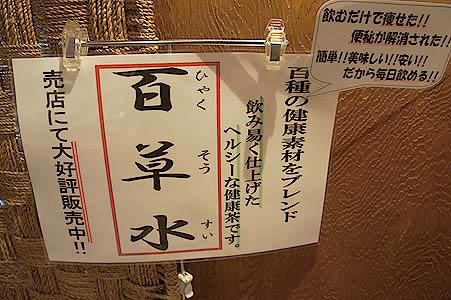 飲むだけで痩せた!!
便秘が解消された!!
簡単!!美味しい!!安い!!
だから毎日飲める!!
百種の健康素材をブレンド
飲み易く仕上げた
ヘルシーな健康茶です。
百草水
ひゃくそうすい
売店にて大好評販売中!!